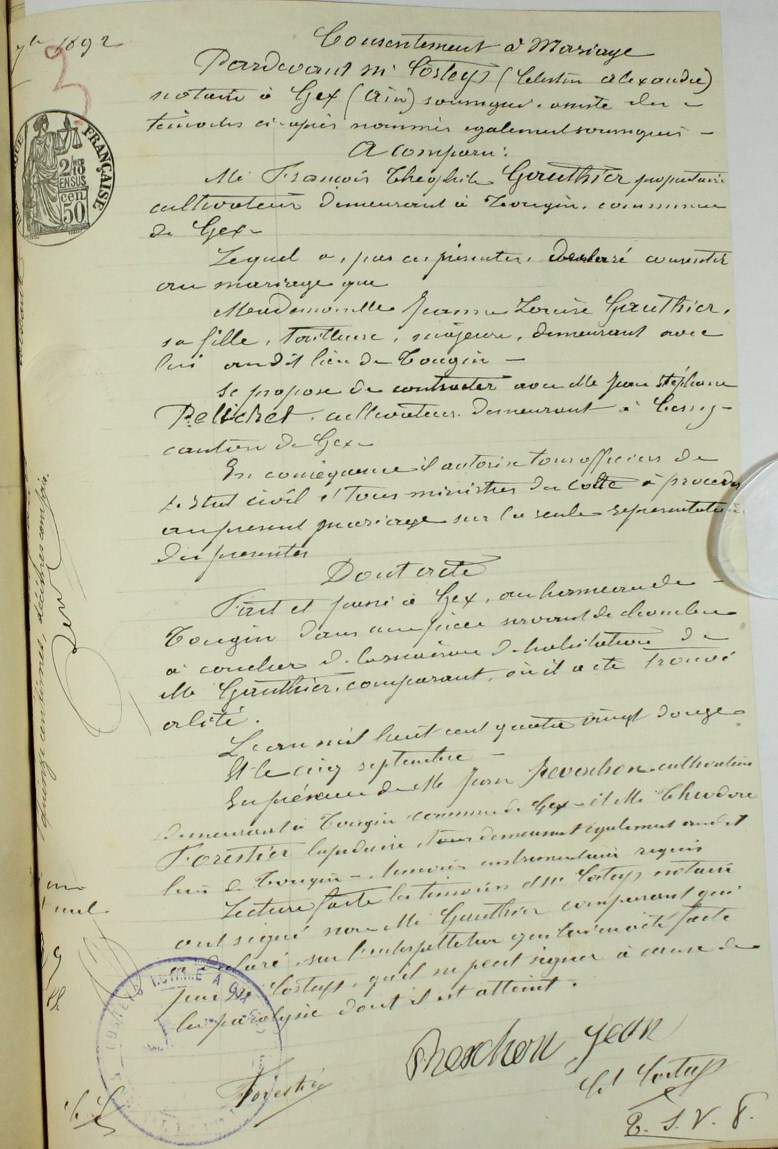 1892
3
Consentement à Mariage
Pardevant Me Costeys (Célestin Alexandre)
notaire à Gex (Ain) soussigné, assisté des
témoins ci-après nommés également soussignés
A comparu:
Mr François Théophile Gauthier propriétaire
cultivateur demeurant à Tougin, commune
de Gex
Lequel a, par ces présentes, déclaré consentir
au mariage que
Mademoiselle Jeanne Louise Gauthier,
sa fille, tailleuse, majeure, demeurant avec
lui audit lieu de Tougin
se propose de contracter avec Mr Jean Stéphane
Pelichet, cultivateur demeurant à Cessy
canton de Gex
En conséquence il autorise tous officiers de
l'Etat civil et tous ministres du culte à procéder
au présent mariage sur la seule représentation
des présentes
Dont acte
Fait et passé à Gex, au hameau de
Tougin dans une pièce servant de chambre
à coucher de la maison d'habitation de
Mr Gauthier, comparant, où il a été trouvé
alité.
L'an mil huit cent quatre vingt douze
Et le cinq septembre
En présence de Mr Jean cultivateur
demeurant à Tougin commune de Gex et Mr Théodore
Forestier lapidaire, tous demeurant également audit
lieu de Tougin témoins instrumentaires requis
Lecture faite les témoins et Me Costeys notaire
ont signé non Mr Gauthier comparant qui
a déclaré, sur l'interpellation qui lui en a été faite
par Me Costeys, qu'il ne peut signer à cause de
la paralysie dont il est atteint.
Jean
Forestier
Cl Costeys
T. S. V. P.
FRANÇAISE
2/10
EN SUS
cen
50
quinze centimes, décimes compris.